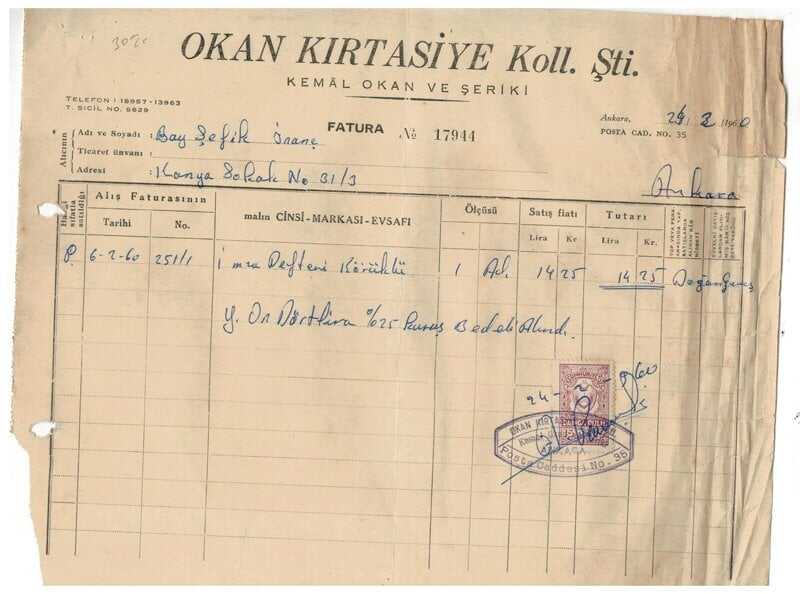 OKAN KIRTASİYE Koll. Şti.
KEMÂL OKAN VE ŞERİKİ
TELEFON : 18957-13963
T. SİCİL NO. 6629
Ankara, 24/ 2 /1960
POSTA CAD. NO. 35
FATURA № 17944
Alıcının
Adı ve Soyadı : Bay Şefik İnanç
Ticaret ünvanı :
Adresi : Konya Sokak No 31/3
Ankara
Alış Faturasının
Tarihi No.
malın CİNSİ-MARKASI-EVSAFI
Ölçüsü
Satış fiatı
Lira Kr
Tutarı
Lira Kr.
P. 6-2-60 251/1 İmza Defteri Körüklü 1 Ad. 14 25 14 25
Y. On Dört lira %25 Kuruş Bedeli Alındı.
24-2-960
OKAN KIRTA
Posta Caddesi No. 35